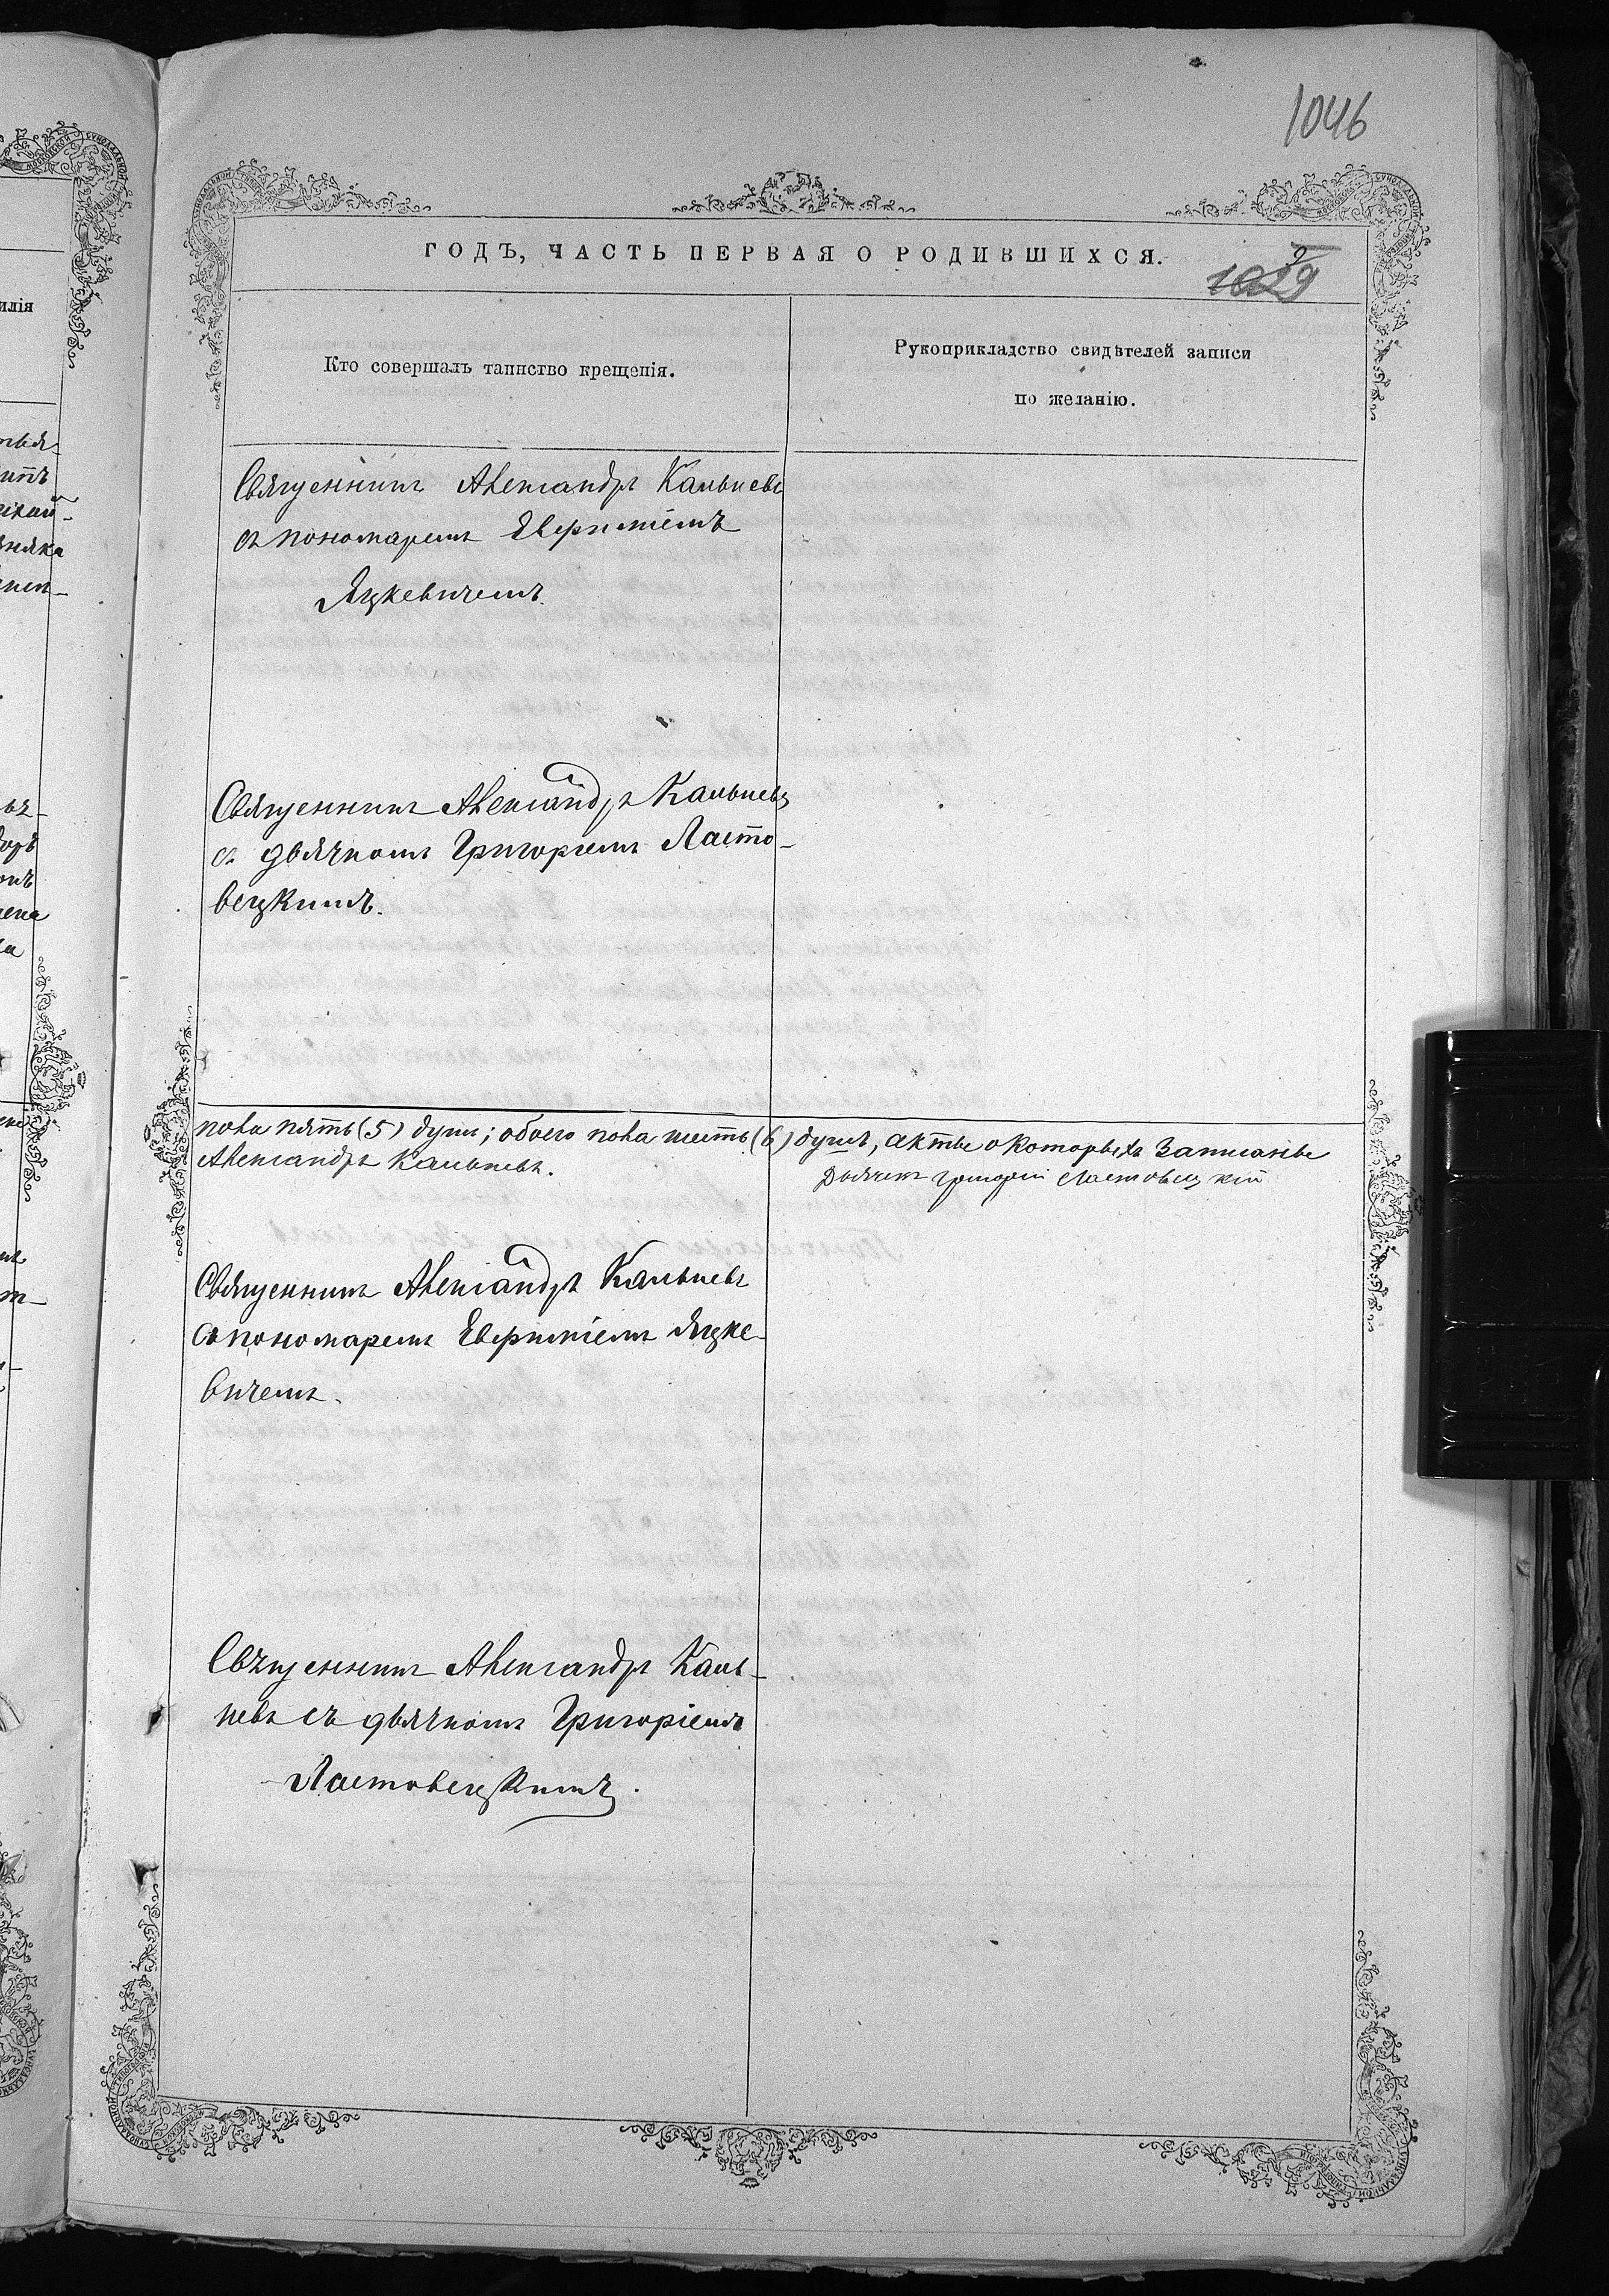 1046
ГОДЪ, ЧАСТЬ ПЕРВАЯ О РОДИВШИХСЯ.
1029
Кто совершалъ таинство крещенія.
Рукоприкладство свидѣтелей записи
по желанію.
илія
Священникъ Александръ Кальневъ
съ пономаремъ Евфиміемъ
Яцкевичемъ.
Священникъ Александръ Кальневъ
съ дьячкомъ Григоріемъ Ласто-
вецкимъ.
пола пять (5) душъ; обоего пола шесть (6) душъ, акты о которыхъ записаны
Александръ Кальневъ.
Дьячекъ Григорій Ластовецкій
Священникъ Александръ Кальневъ
съ пономаремъ Евфиміемъ Яцке-
вичемъ.
Священникъ Александръ Каль-
невъ съ дьячкомъ Григоріемъ
Ластовецкимъ.